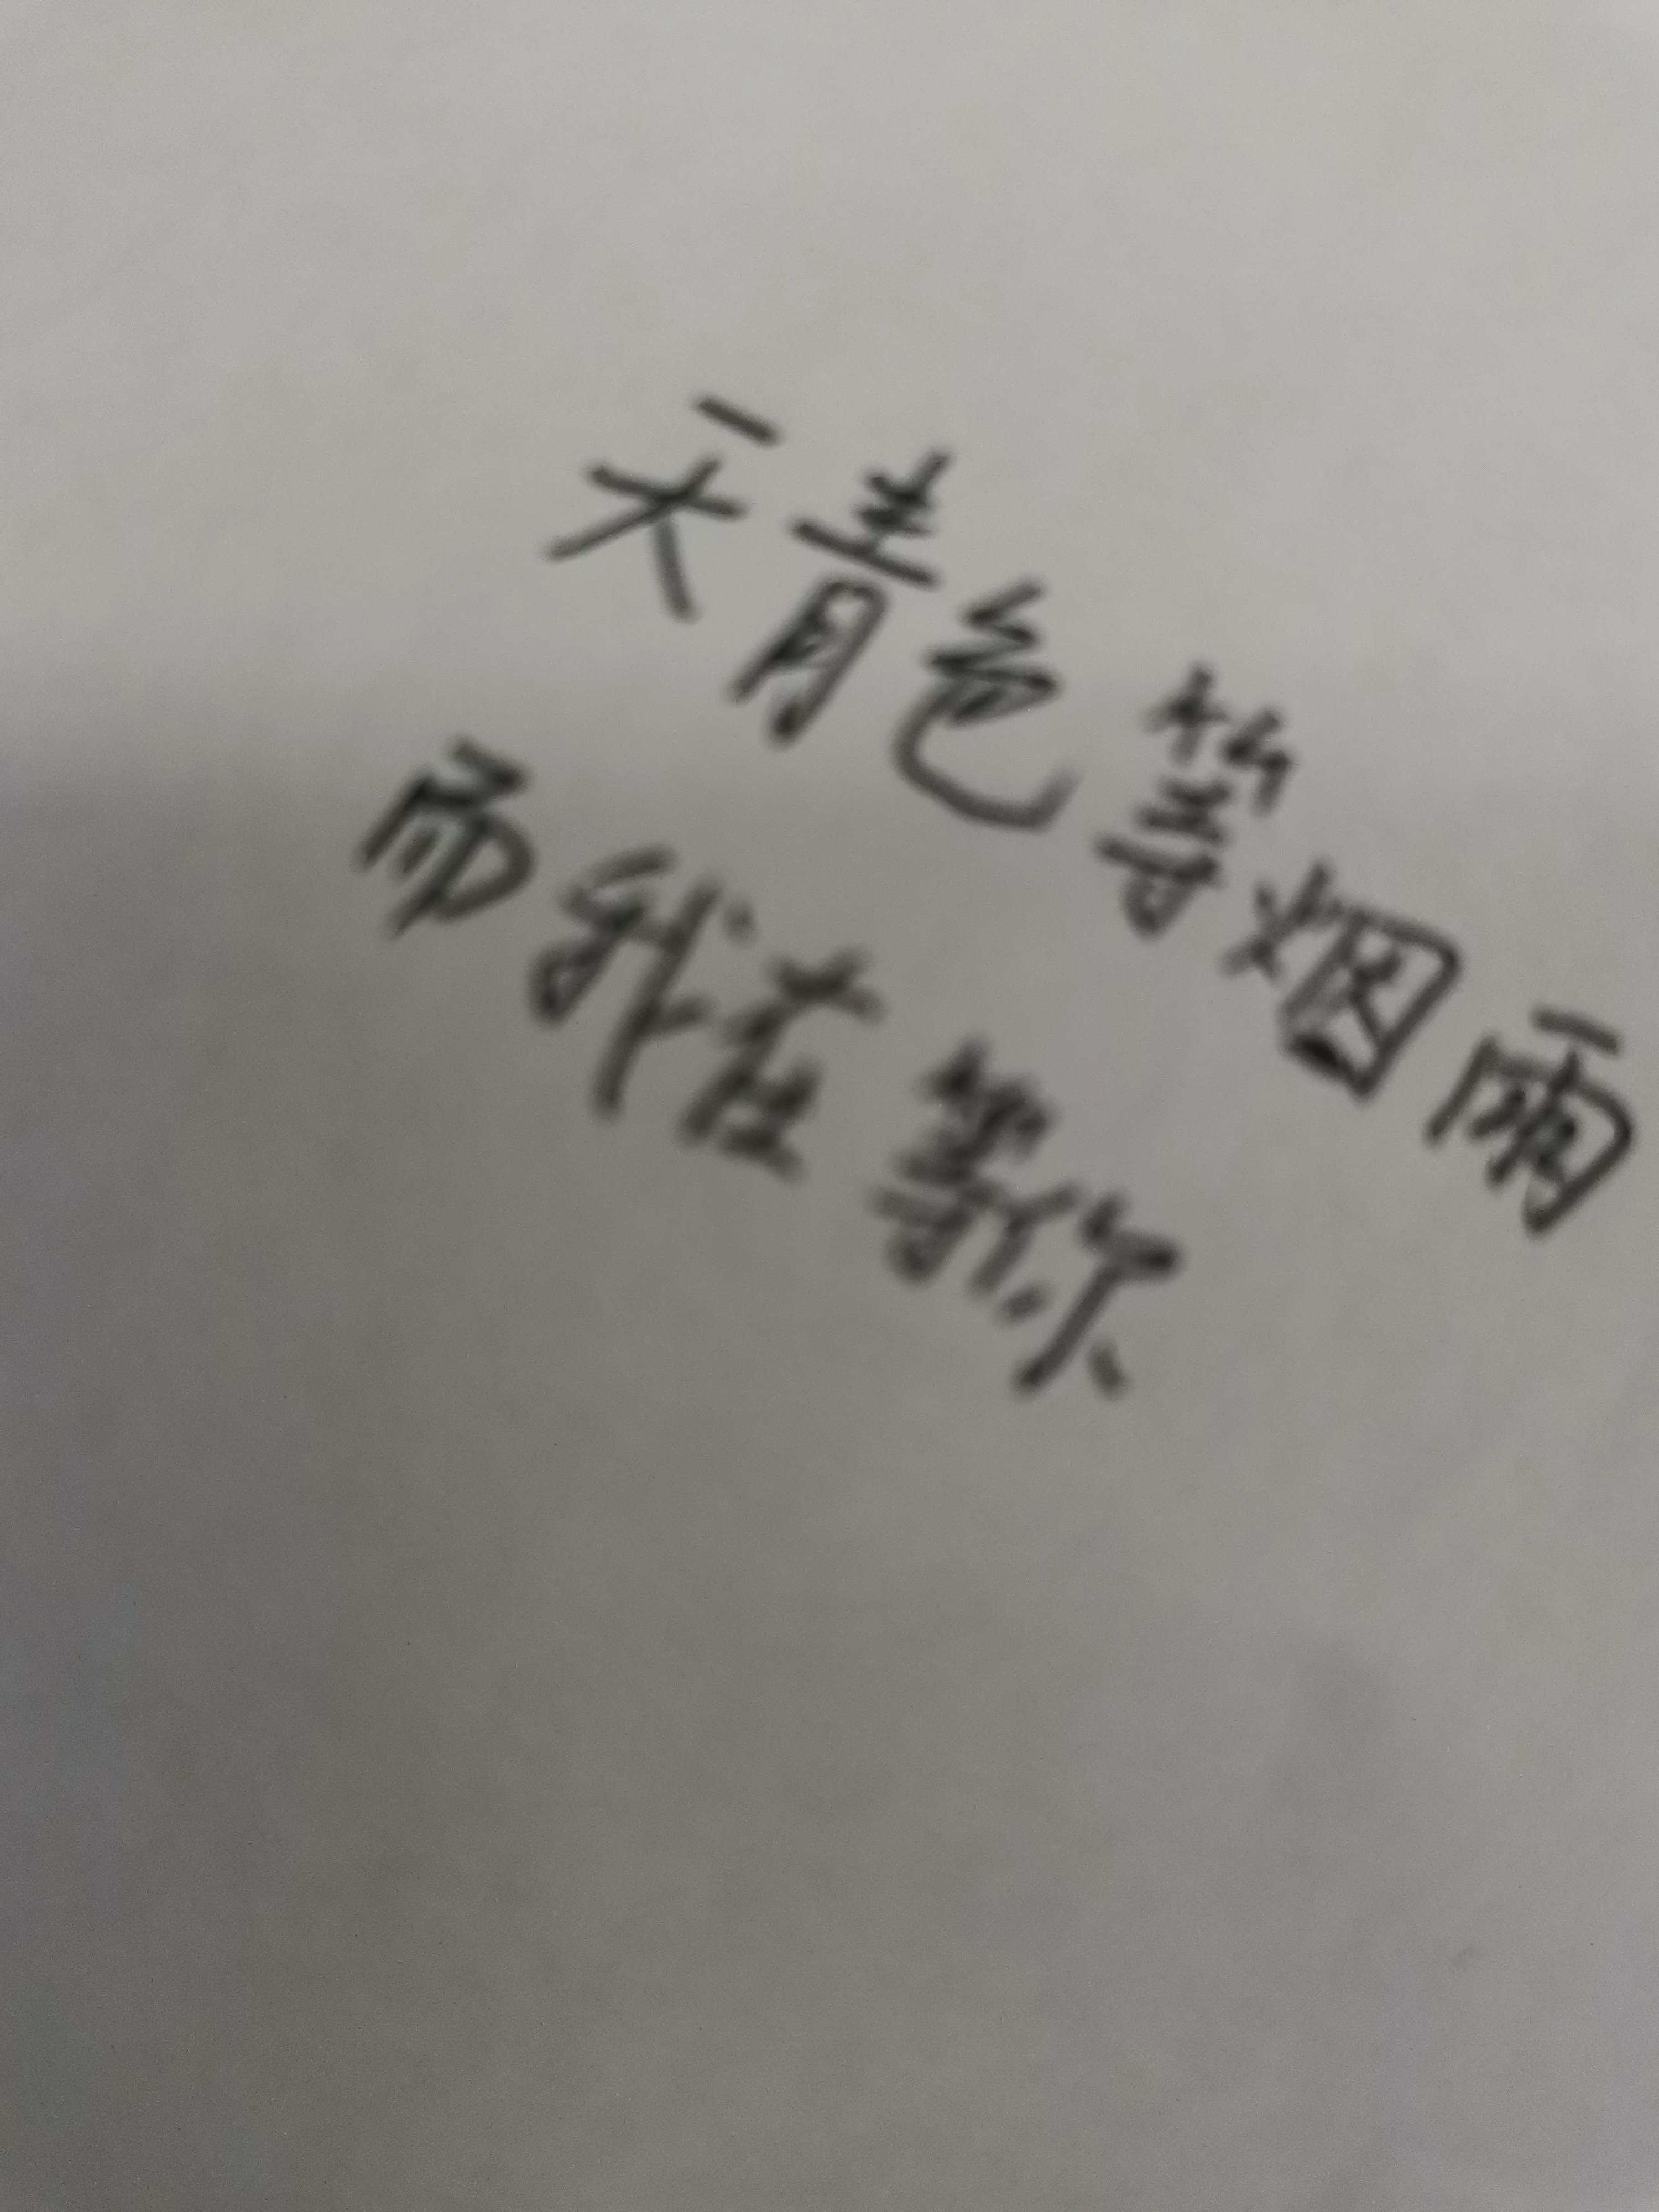 天青色等烟雨
而我在等你